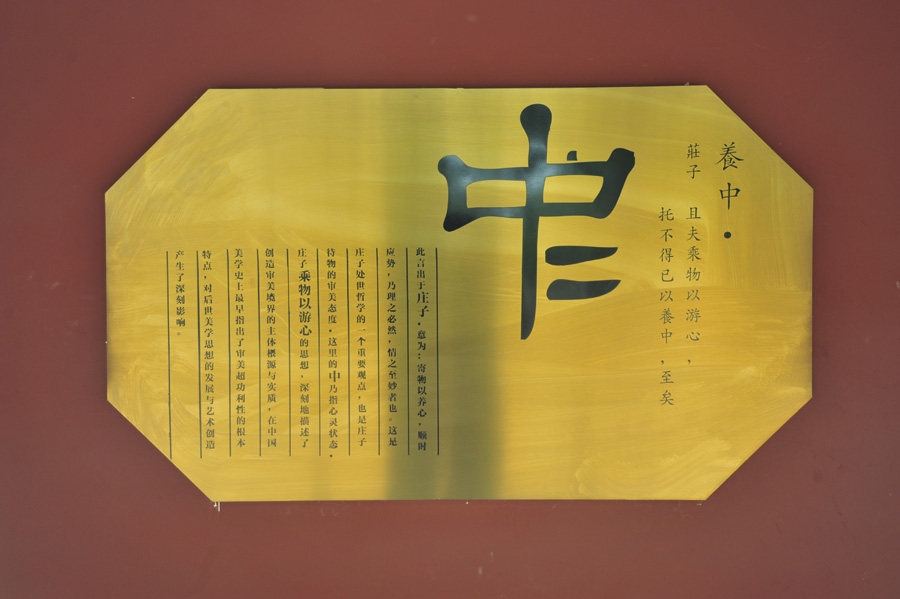 養中·
莊子 且夫乘物以游心，
托不得已以養中，至矣
中
此言出于庄子。意为：寄物以养心，顺时
应势，乃理之必然，情之至妙者也。这是
庄子处世哲学的一个重要观点，也是庄子
待物的审美态度。这里的中乃指心灵状态。
庄子乘物以游心的思想，深刻地描述了
创造审美境界的主体根源与实质，在中国
美学史上最早指出了审美超功利性的根本
特点，对后世美学思想的发展与艺术创造
产生了深刻影响。